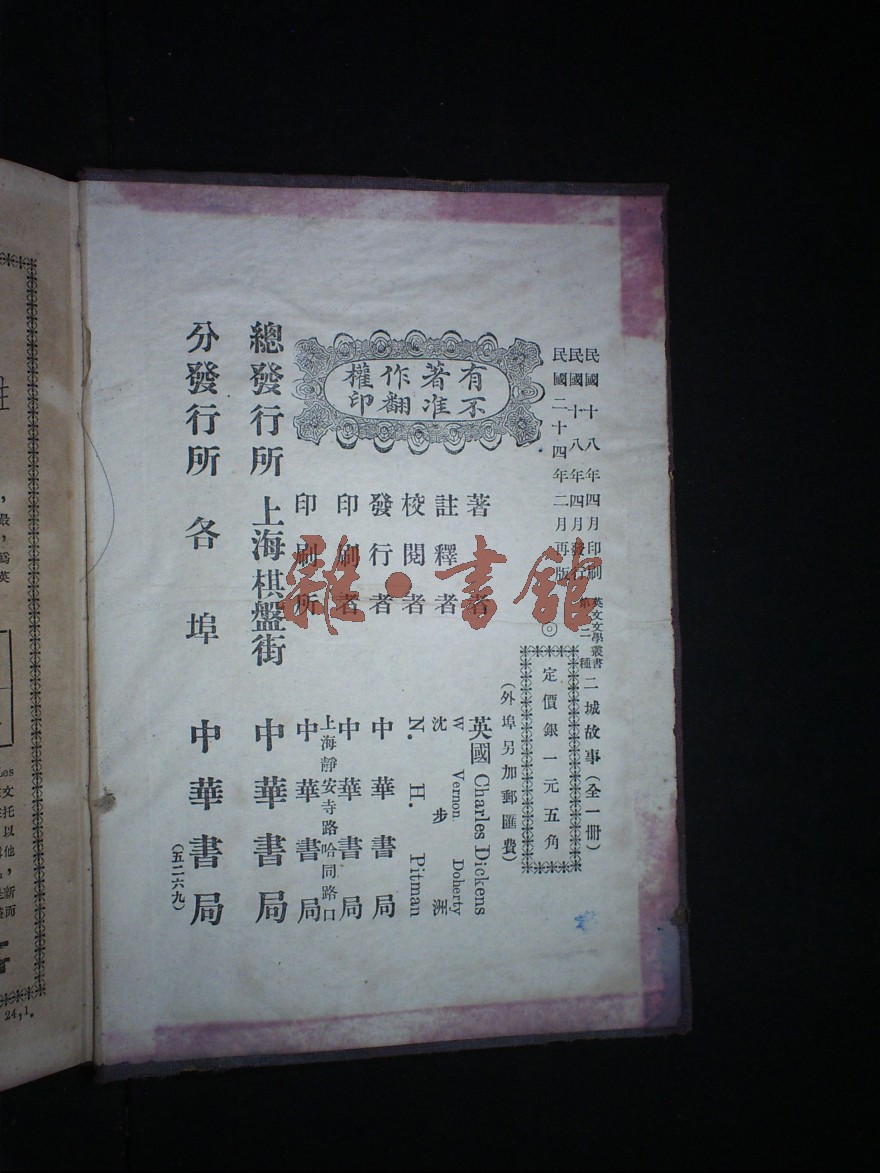 民國十八年四月印刷
民國十八年四月發行
民國二十四年二月再版
英文文學叢書
第二種
二城故事（全一冊）
◎
定價銀一元五角
（外埠另加郵匯費）
有著作權
不准翻印
著者 英國 Charles Dickens
註釋者 W Vernon Doherty
沈步洲
校閱者 N. H. Pitman
發行者 中華書局
印刷者 中華書局
上海靜安寺路哈同路口
印刷所 中華書局
總發行所 上海棋盤街 中華書局
分發行所 各埠 中華書局
（五二六九）
雜·書館
24,1.